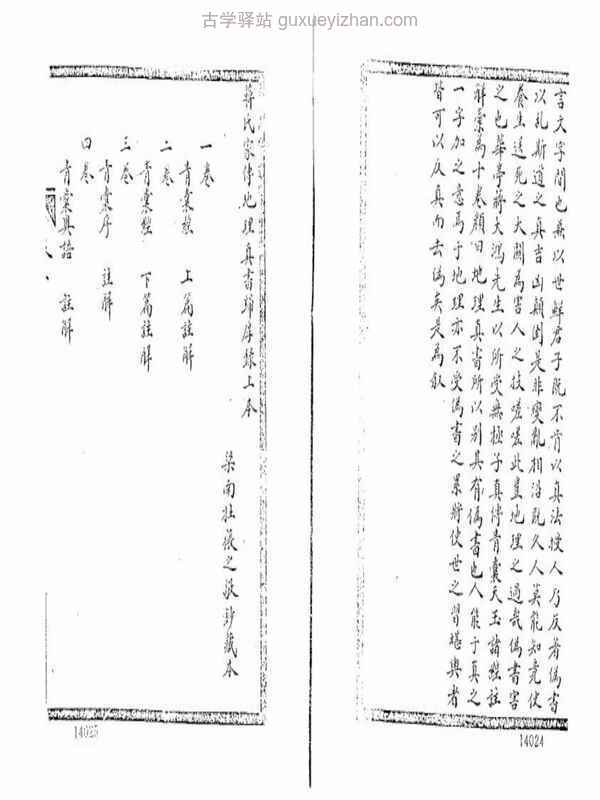 古学驿站 guxueyizhan.com
言文字間也兼以世鮮君子既不肯以真法授人乃反著偽書
以乱斯道之真吉凶顛倒是非變亂相沿既久人莫能知竟使
養生送死之大關為害人之技嗟嗟此豈地理之過哉偽書害
之也華亭蔣大鴻先生以所受無極子真傳青囊天玉諸經註
解彙為十卷顏曰地理真書所以别其有偽書也人能于真之
一字加之意焉于地理亦不受偽書之累將使世之習堪輿者
皆可以反真而去偽矣是為叙
14024
蔣氏家傳地理真書 上本
梁南壯張之 抄藏本
一卷
青囊經 上篇註解
二卷
青囊經 下篇註解
三卷
青囊序 註解
四卷
青囊奥語 註解
14025